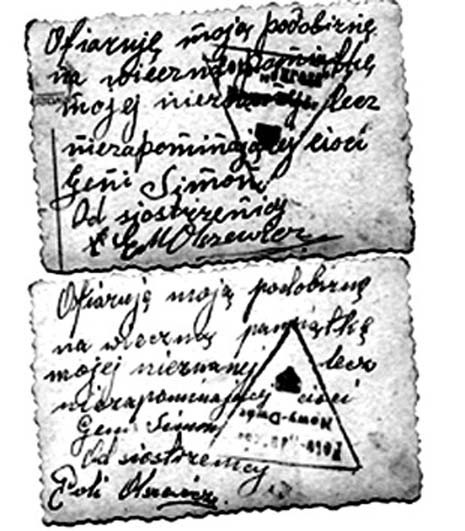 Ofiaruję moją podobiznę
na wieczną pamiątkę
mojej lecz
niezapominającej cioci
Geni Simoń
Od siostrzenicy
Ofiaruję moją podobiznę
na wieczną pamiątkę
mojej nieznanej lecz
niezapominającej cioci
Geni Simoń
Od siostrzenicy
Nowy-Dwór